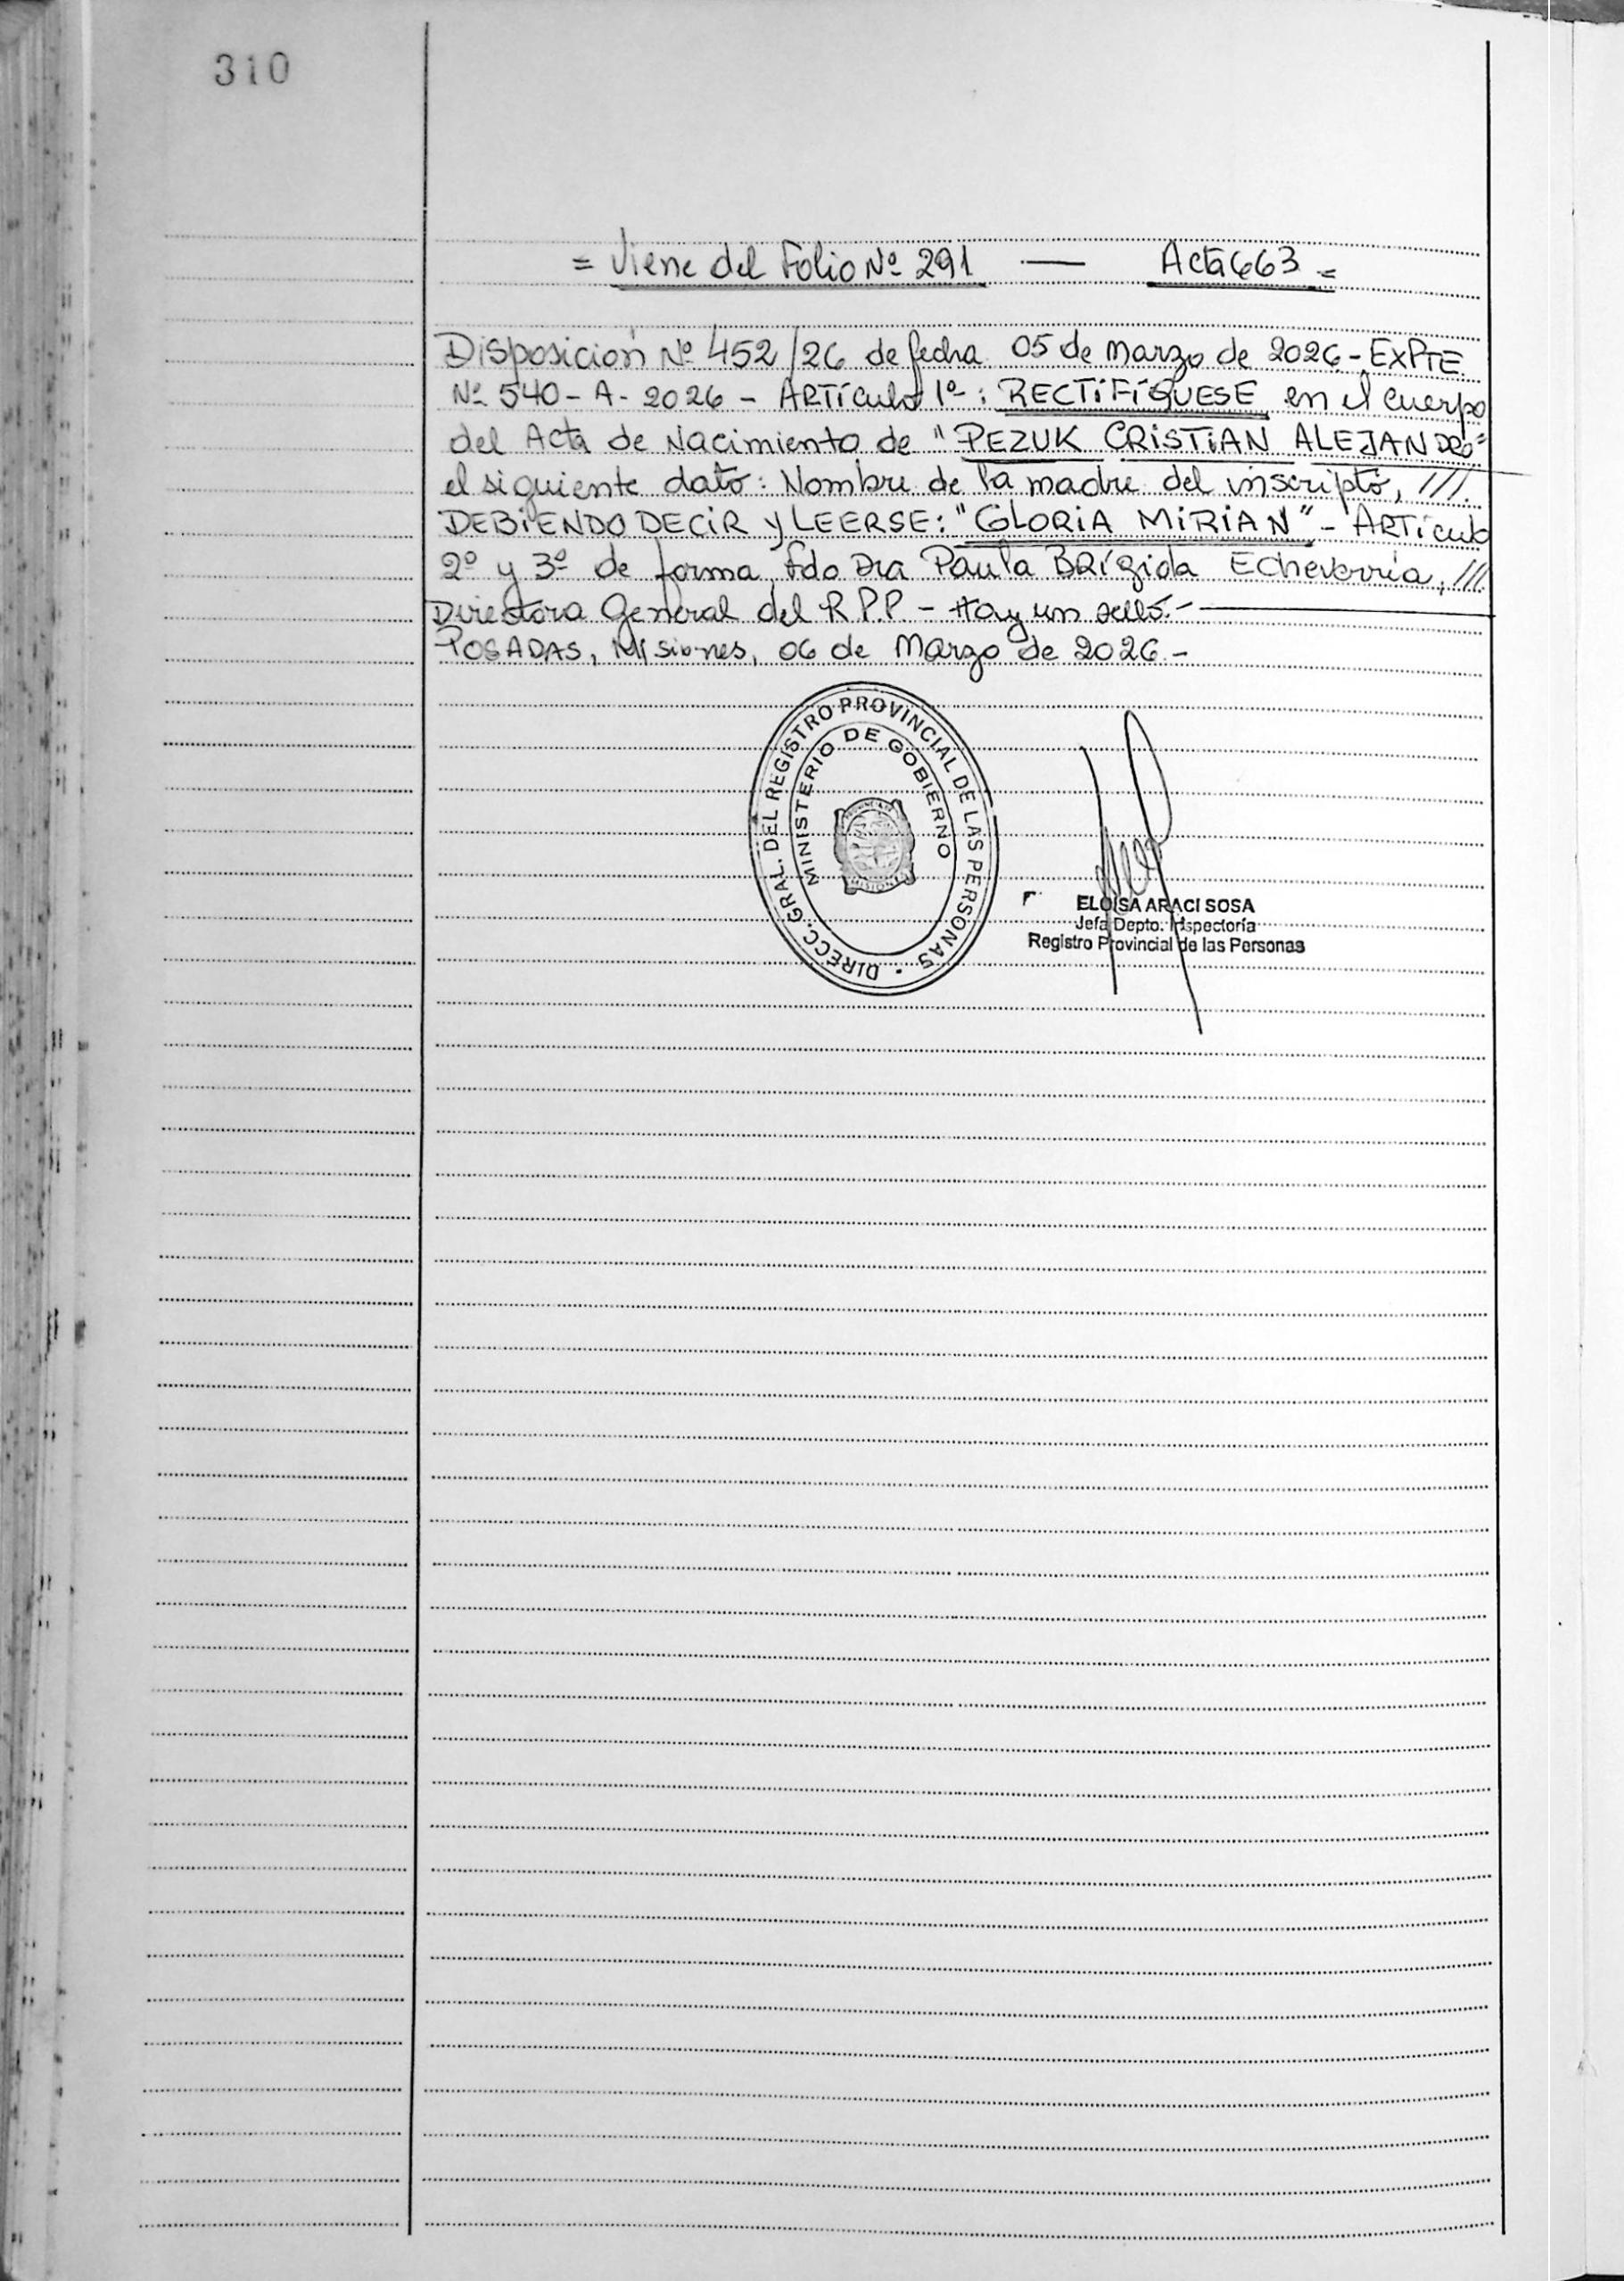 310
= Viene del Folio Nº 291 — Acta 663 =
Disposición Nº 452/26 de fecha 05 de Marzo de 2026 - EXPTE
Nº 540 - A - 2026 - ARTículo 1º: RECTiFíQUESE en el cuerpo
del Acta de Nacimiento de "PEZUK CRiSTiAN ALEJANDRO"
el siguiente dato: Nombre de la madre del inscripto, ///.
DEBiENDO DECiR y LEERSE: "GLORiA MiRiAN" - ARTículo
2º y 3º de forma, Fdo Dra Paula BRígida Echeverría, ///
Directora General del R.P.P - Hay un sello. -
POSADAS, Misiones, 06 de Marzo de 2026. -
DIRECC. GRAL. DEL REGISTRO PROVINCIAL DE LAS PERSONAS
MINISTERIO DE GOBIERNO
PROVINCIA DE
MISIONES
ELOISA ARACI SOSA
Jefa Depto. Inspectoría
Registro Provincial de las Personas